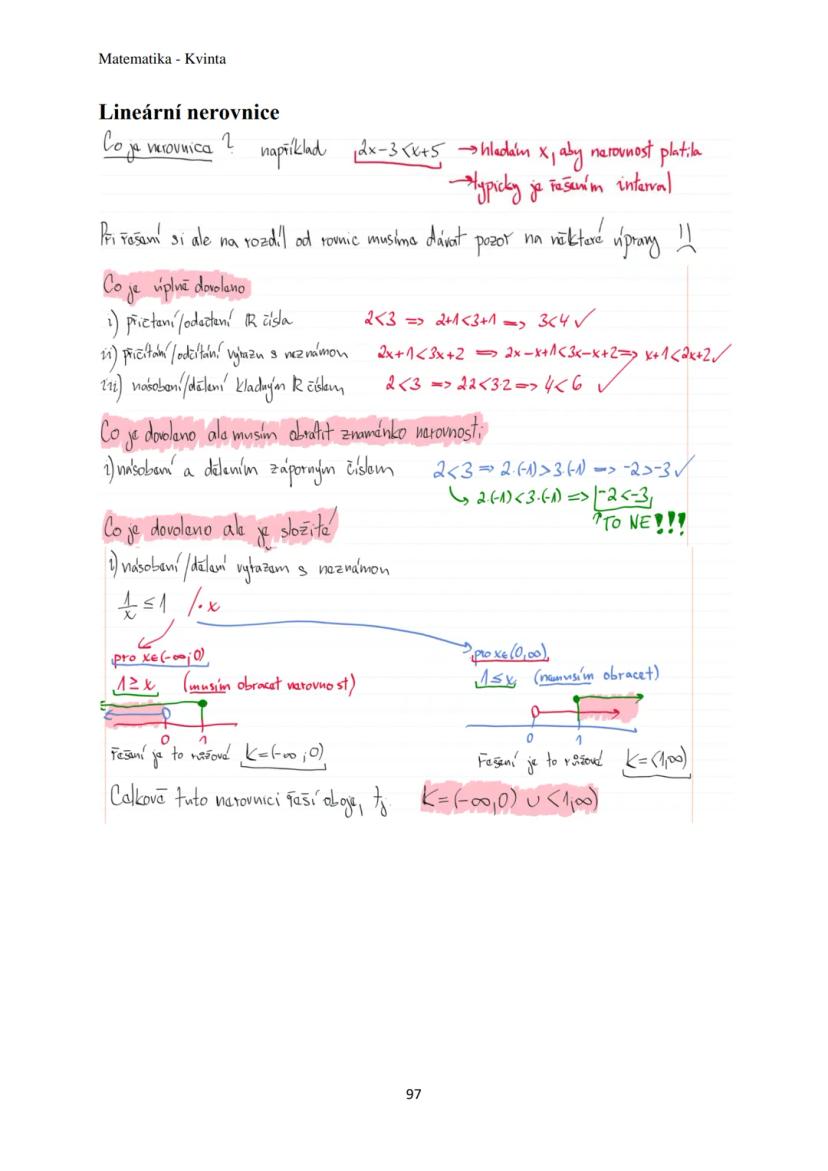 Matematika - Kvinta
Lineární nerovnice
Co je nerovnice? například 2x-3<x+5 → hledám x, aby nerovnost platila
→ typicky je řešením interval
Při řešení si ale na rozdíl od rovnic musíme dávat pozor na některé úpravy !!
Co je úplně dovoleno
i) přičtení/odečtení ℝ čísla 2<3 => 2+1<3+1 => 3<4 ✓
ii) přičítání/odčítání výrazu s neznámou 2x+1<3x+2 => 2x-x+1<3x-x+2 => x+1<2x+2 ✓
iii) násobení/dělení kladným ℝ číslem 2<3 => 2·2<3·2 => 4<6 ✓
Co je dovoleno ale musím obrátit znaménko nerovnosti
i) násobení a dělením záporným číslem 2<3 => 2·(-1)>3·(-1) => -2>-3 ✓
↳ 2·(-1)<3·(-1) => -2<-3
↑TO NE!!!
Co je dovoleno ale je složité
i) násobení/dělení výrazem s neznámou
1/x ≤ 1 /·x
pro x∈(-∞;0) pro x∈(0,∞)
1≥x (musím obracet nerovnost) 1≤x (nemusím obracet)
0 1 0 1
řešení je to růžové K=(-∞;0) řešení je to růžové K=<1,∞)
Celkově tuto nerovnici řeší oboje, tj. K=(-∞,0) ∪ <1,∞)
97